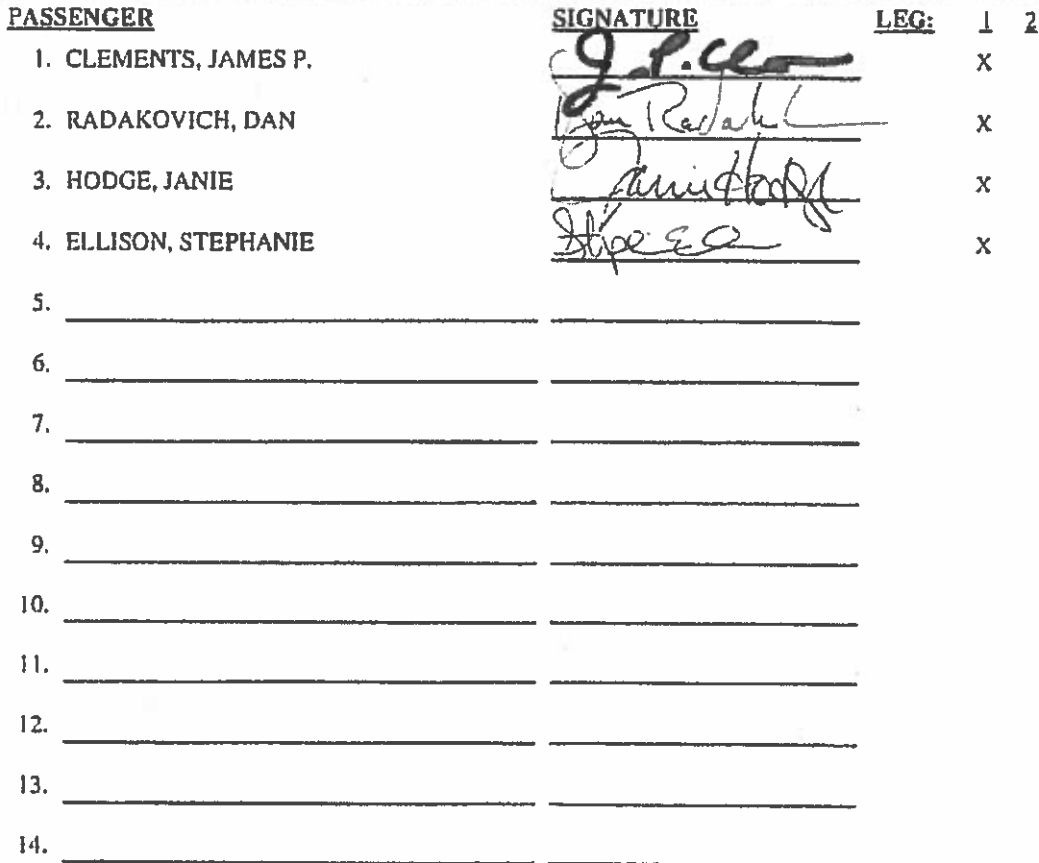 PASSENGER SIGNATURE LEG: 1 2
1. CLEMENTS, JAMES P. J.P. X
2. RADAKOVICH, DAN Dan X
3. HODGE, JANIE Janie Hodge X
4. ELLISON, STEPHANIE X
5.
6.
7.
8.
9.
10.
11.
12.
13.
14.